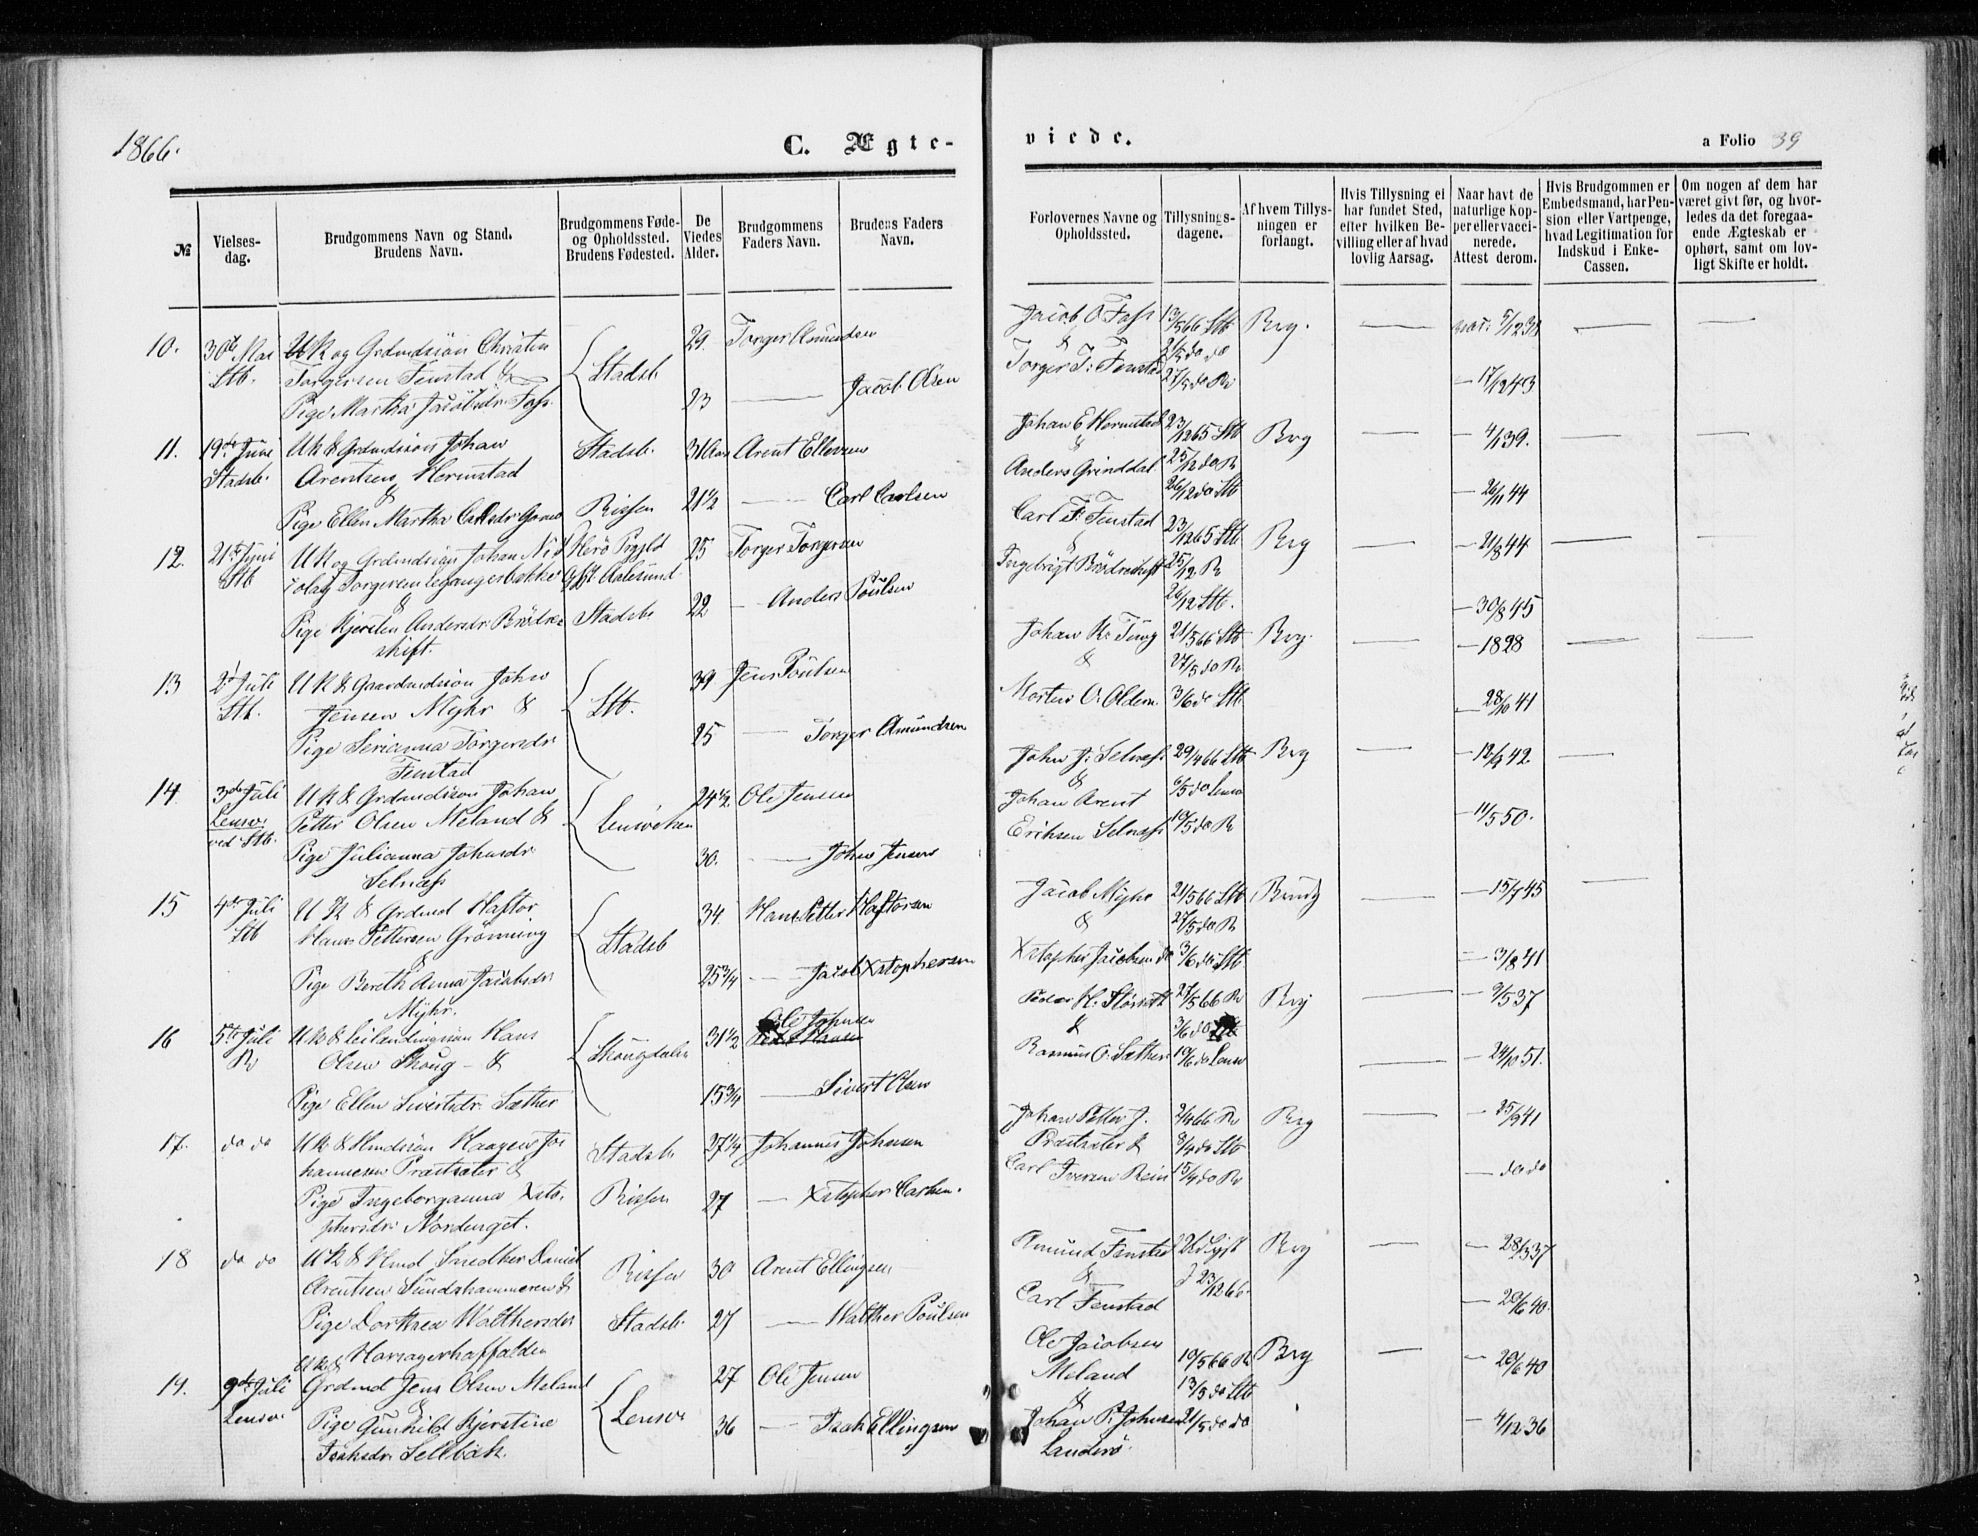 1866.
C. Ægte-
viede.
a Folio 39
№
Vielses-
dag.
Brudgommens Navn og Stand.
Brudens Navn.
Brudgommens Føde-
og Opholdssted.
Brudens Fødested.
De
Viedes
Alder.
Brudgommens
Faders Navn.
Brudens Faders
Navn.
Forlovernes Navne og
Opholdssted.
Tillysnings-
dagene.
Af hvem Tillys-
ningen er
forlangt.
Hvis Tillysning ei
har fundet Sted,
efter hvilken Be-
villing eller af hvad
lovlig Aarsag.
Naar havt de
naturlige Kop-
per eller vacci-
nerede.
Attest derom.
Hvis Brudgommen er
Embedsmand, har Pen-
sion eller Vartpenge,
hvad Legitimation for
Indskud i Enke-
Cassen.
Om nogen af dem har
været givt før, og hvor-
ledes da det foregaa-
ende Ægteskab er
ophørt, samt om lov-
ligt Skifte er holdt.
10. 30te Mai Stb.
UK og Grdmdsiøn Christen
Torgersen Fenstad &
Pige Martha Jacobsdr Foss
Stadsb
29. Torger Amundsen
23 — Jacob Olsen
Jacob O. Foss
&
Torger T. Fenstad
13/5 66 Stb
21/5 do do
27/5 do R
Brg.
5/12 38
— 17/12 43
11. 19de Juni Stadsb.
UK & Grdmdsiøn Johan
Arentsen Hermstad
&
Pige Ellen Martha Carlsdr
Stadsb.
Rissen
31 Aar Arent Ellevsen
21½ — Carl Carlsen
Johan E Hermstad
&
Anders Grinddal
23/12 65 Stb
25/12 do R
26/12 do Stb
Brg
— 4/1 39.
— 26/11 44
12. 21de Juni Stb
UK og Grdmdsiøn Johan
&
Pige Kjersten Andersdr Brødre-
skift.
Herö Prgjld
Aalesund
Stadsb.
25 Torger Torgersen
22 — Anders Poulsen
Carl F. Fenstad
&
Ingebrigt Brødreskift
23/12 65 Stb
25/12 R
26/12 Stb.
Brg
— 21/8 44
— 30/8 45
13 2d Juli Stb.
UK & Gaardmdsiøn John
Jensen Myhr &
Pige Serianna Torgersdr
Fenstad
Stb.
39 Jens Poulsen
25 — Torger Amundsen
Johan K. Ting
&
Morten O. Oldem.
21/5 66 Stb
27/5 do R
3/6 do Stb
Brg.
— 1828
— 28/10 41
14 3de Juli
Lensv.
ved Stb.
UK & Grdmdsiøn Johan
Petter Olsen Meland &
Pige Julianna Johnsdr
Selness
Lensviken
24½ Ole Jensen
30. — John Jensen
John J. Selness
&
Johan Arent
Eriksen Selness
29/4 66 Stb
6/5 do Lensv
10/5 do R
Brg
— 11/5 50.
15 4de Juli Stb
UK & Grdmd Haftor
Hans Pettersen Grønning
&
Pige Bereth Anna Jacobsdr
Myhr.
Stadsb
34. Hans Petter Haftorsen
25¾ — Jacob Xstophersen
Jacob Myhr
&
Xstopher Jacobsen do
21/5 66 Stb
27/5 do R
3/6 do Stb
— 15/7 45
— 3/8 41
16 5te Juli R
UK & Leilendingsøn Hans
Olsen Skoug — &
Pige Ellen Sivertsdr Sæther
Skougdalen
31½ Ole Johnsen
15¾ — Sivert Olsen
Peder H. Slørseth
&
Rasmus O. Sæther
27/5 66 R
3/6 do Stb
10/6 do Lensv
Brg
— 9/5 37
— 24/10 51.
17. do do
UK & Hmdsiøn Haagen Jo-
hannesen Præstsæter &
Pige Ingeborganna Xsto-
phersdr Nordenget.
Stadsb.
Rissen
27¼ Johannes Johnsen
27 — Xstopher Carlsen.
Johan Petter J.
Præstsæter &
Carl Iversen Rein
2/4 66 R
8/4 do Stb
15/4 do R
Brg
— 25/9 41
— do do
18 do do
UK & Hmd Snedker Daniel
Arentsen Sundshammeren &
Pige Dorthea Walthersdr
Rissen
Stadsb.
30 Arent Ellingsen
27 — Walther Poulsen
Amund Fenstad
&
Carl Fenstad
Brg
— 28/3 37
— 20/6 40.
19. 9de Juli
Lensv.
UK &
Grdmd Jens Olsen Meland
&
Pige Gunhild Kjerstine
Isaksdr Sellbæk.
Lensv.
27 Ole Jensen
36 — Isak Ellingsen
Ole Jacobsen
Meland
&
Johan P. Johnsen
Landrø
10/5 66 R
13/5 do Stb
21/5 do do
Brg
— 20/6 40
— 4/12 36